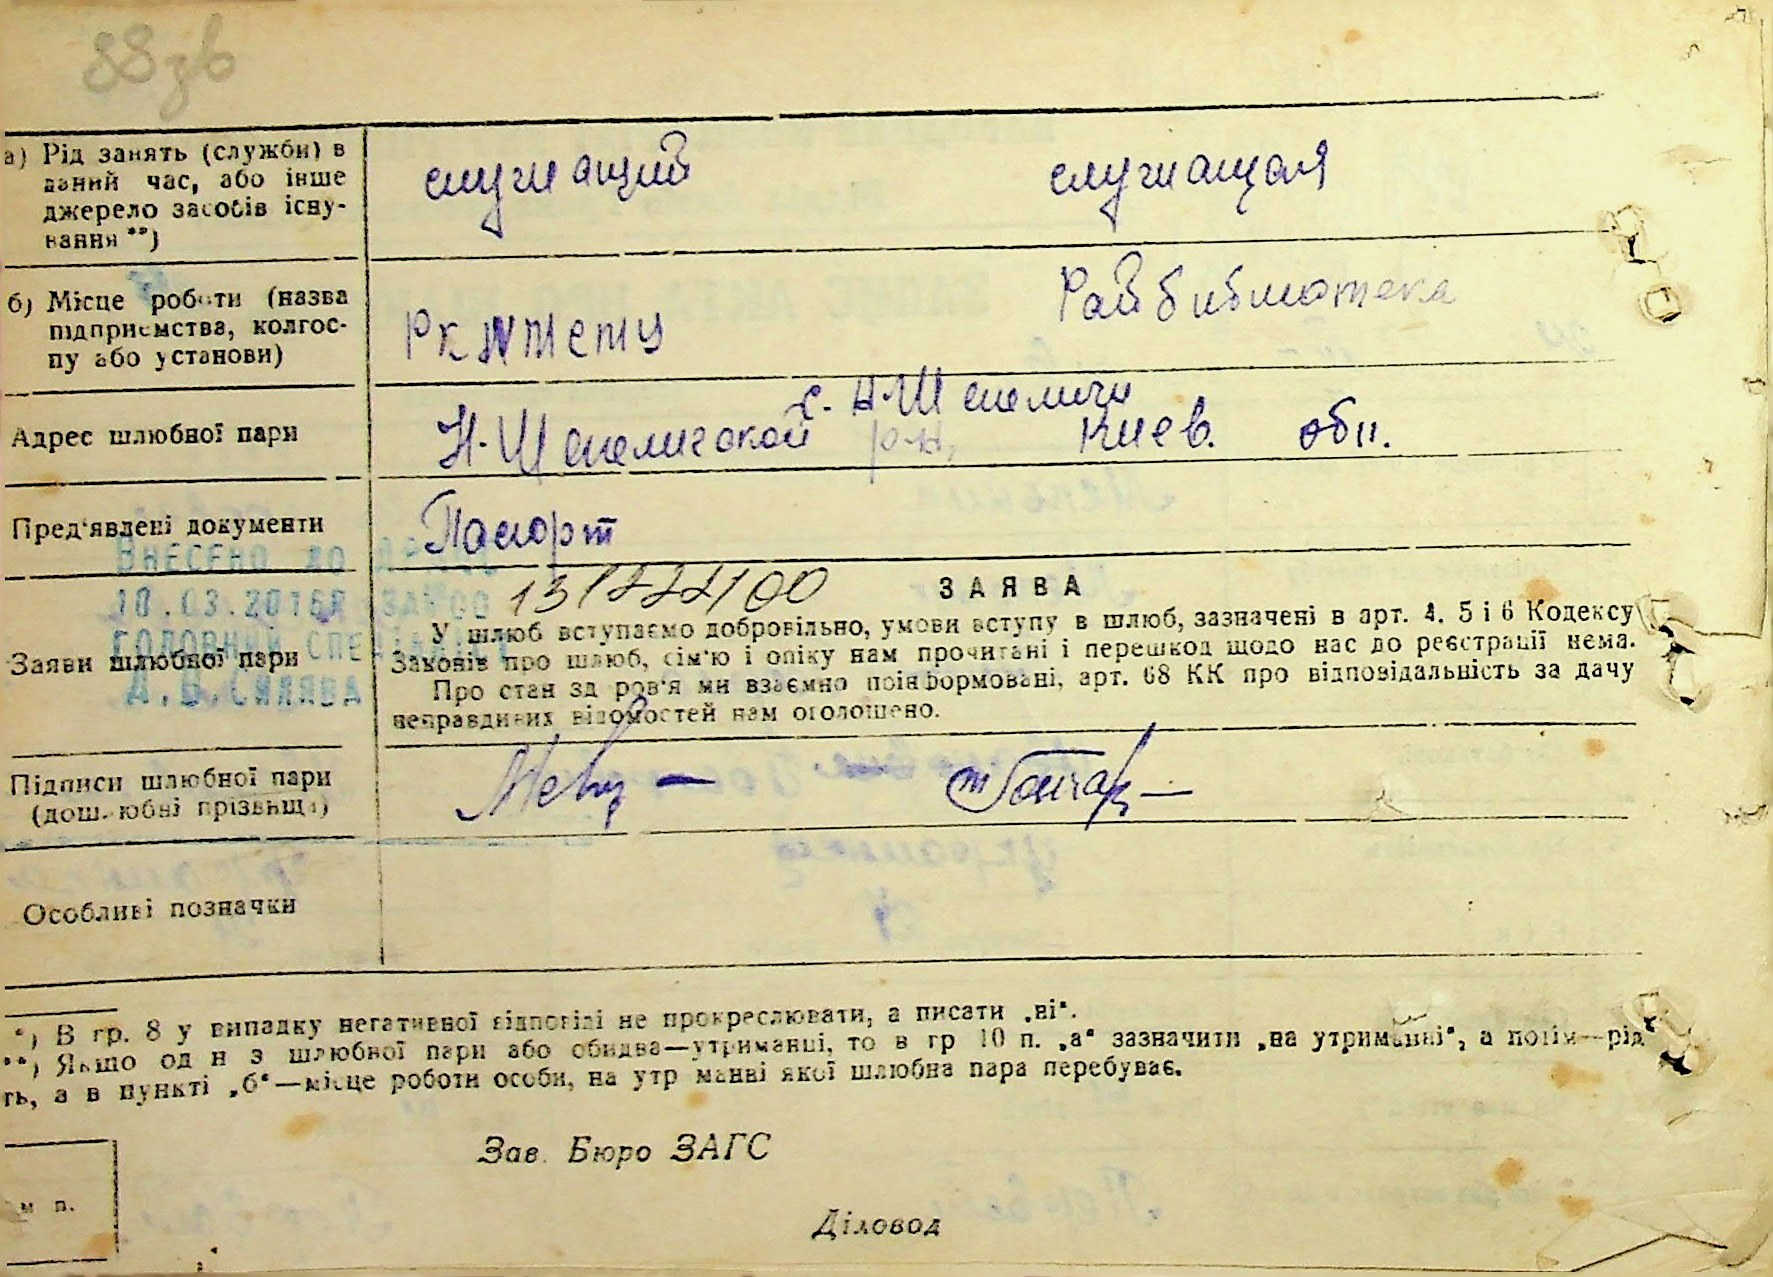 88 зв
а) Рід занять (служби) в служащий служащая
даний час, або інше
джерело засобів існу-
вання **)
б) Місце роботи (назва Райбиблиотека
підприємства, колгос-
пу або установи)
с. Н-Шепеличи
Адрес шлюбної пари Н-Шепеличской р-н, Киев. обл.
Пред'явлені документи Паспорт
ВНЕСЕНО ДО
13/222/00 ЗАЯВА
10.03.2016Р
У шлюб вступаємо добровільно, умови вступу в шлюб, зазначені в арт. 4. 5 і 6 Кодексу
ГОЛОВНИЙ СПЕЦІАЛІСТ
Заяви шлюбної пари Законів про шлюб, сім'ю і опіку нам прочитані і перешкод щодо нас до реєстрації нема.
А.В.СИЛЯВА
Про стан здоров'я ми взаємно поінформовані, арт. 68 КК про відповідальність за дачу
неправдивих відомостей нам оголошено.
Підписи шлюбної пари Гончар
(дошлюбні прізвища)
Особливі позначки
*) В гр. 8 у випадку негативної відповіді не прокреслювати, а писати „ні“.
**) Якщо один з шлюбної пари або обидва—утриманці, то в гр 10 п. „а“ зазначити „на утриманні“, а потім—рід
ть, а в пункті „б“—місце роботи особи, на утриманні якої шлюбна пара перебуває.
Зав. Бюро ЗАГС
м п.
Діловод